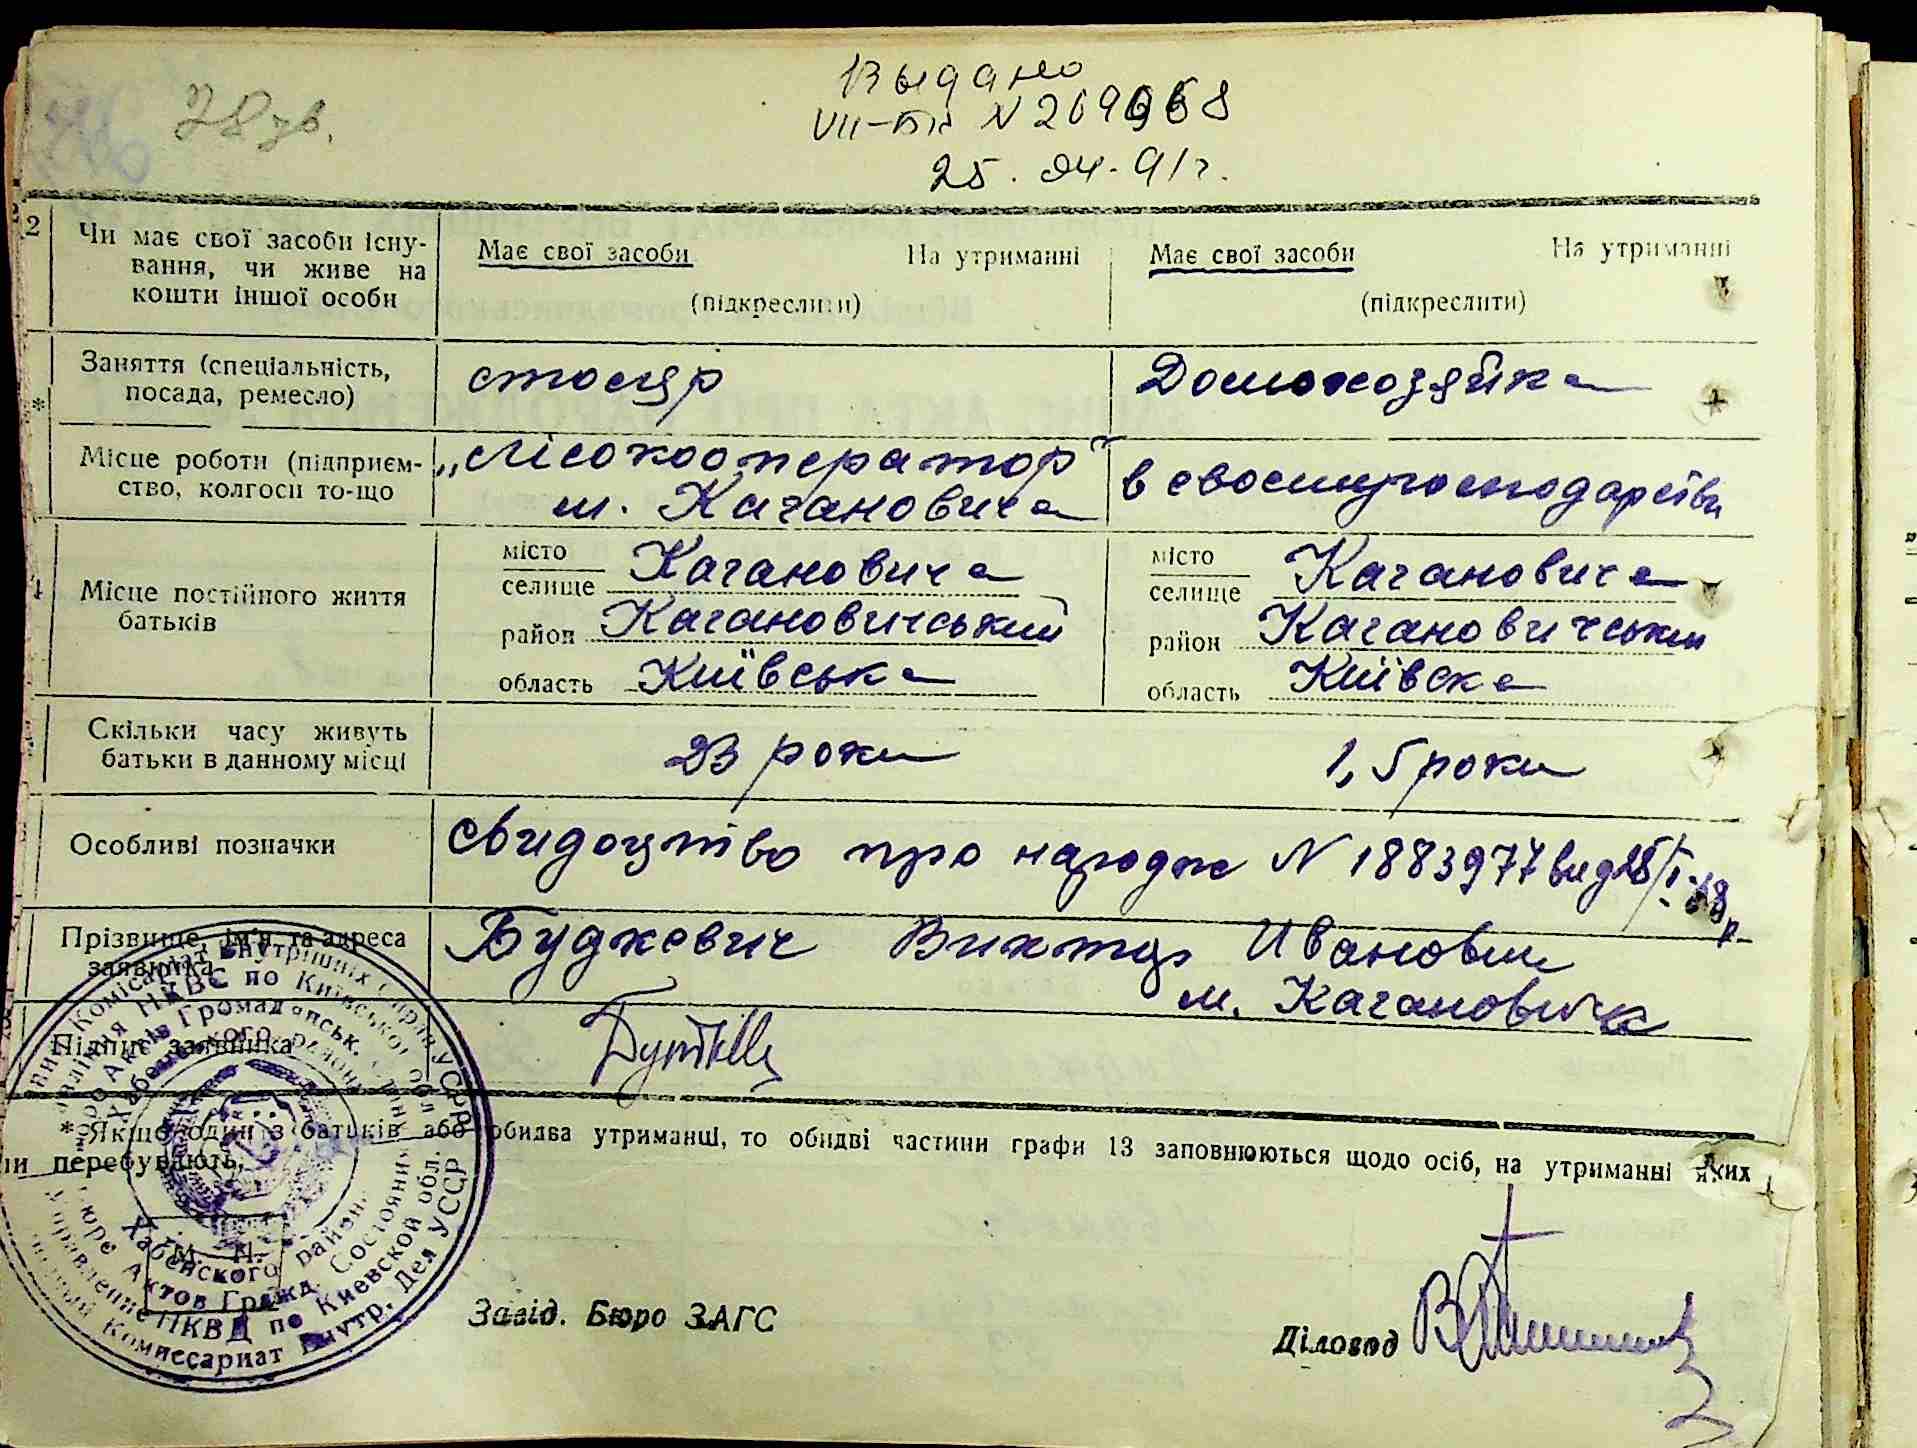 78 зв.
Выдано
VII-БК N 209668
25. 04. 91 г.
2
Чи має свої засоби існу-
вання, чи живе на
кошти іншої особи
Має свої засоби На утриманні
(підкреслити)
Має свої засоби На утриманні
(підкреслити)
Заняття (спеціальність,
посада, ремесло)
*
столяр
Домохозяйка
Місце роботи (підприєм-
ство, колгосп то-що
„Лісокооператор"
м. Кагановича
в своєму господарстві
Місце постійного життя
батьків
місто
селище Кагановича
район Кагановичський
область Київська
місто
селище Кагановича
район Кагановичський
область Київска
Скільки часу живуть
батьки в данному місці
23 роки
1,5 роки
Особливі позначки
Свидоцтво про народж N 1883977 вид 28/I-38 р.
Прізвище, ім'я та адреса
заявника
Будкевич Виктор Иванович
м. Кагановича
Підпис заявника
* Якщо один з батьків або обидва утриманці, то обидві частини графи 13 заповнюються щодо осіб, на утриманні яких
ни перебувають.
М. П.
Завід. Бюро ЗАГС
Діловод
Народний Комісаріат Внутрішніх Справ УСРР
Управління НКВС по Київській обл.
Бюро Актів Громадянськ. Стану
Хабенського району
Хабенского района
Бюро Актов Гражд. Состояния
Управление НКВД по Киевской обл.
Народный Комиссариат Внутр. Дел УССР